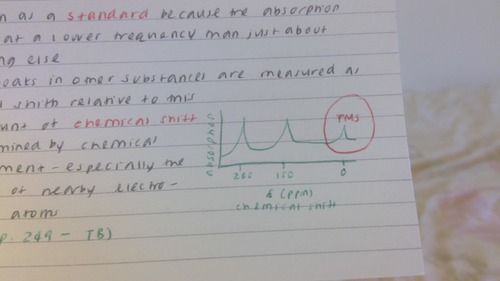 n as a standard because the absorption
at a lower frequency than just about
ng else
peaks in other substances are measured as
l shift relative to this
unt of chemical shift
mined by chemical
ment - especially the
of nearby electro-
atom
p. 249 - TB)
absorption
TMS
200 150 0
δ (ppm)
chemical shift